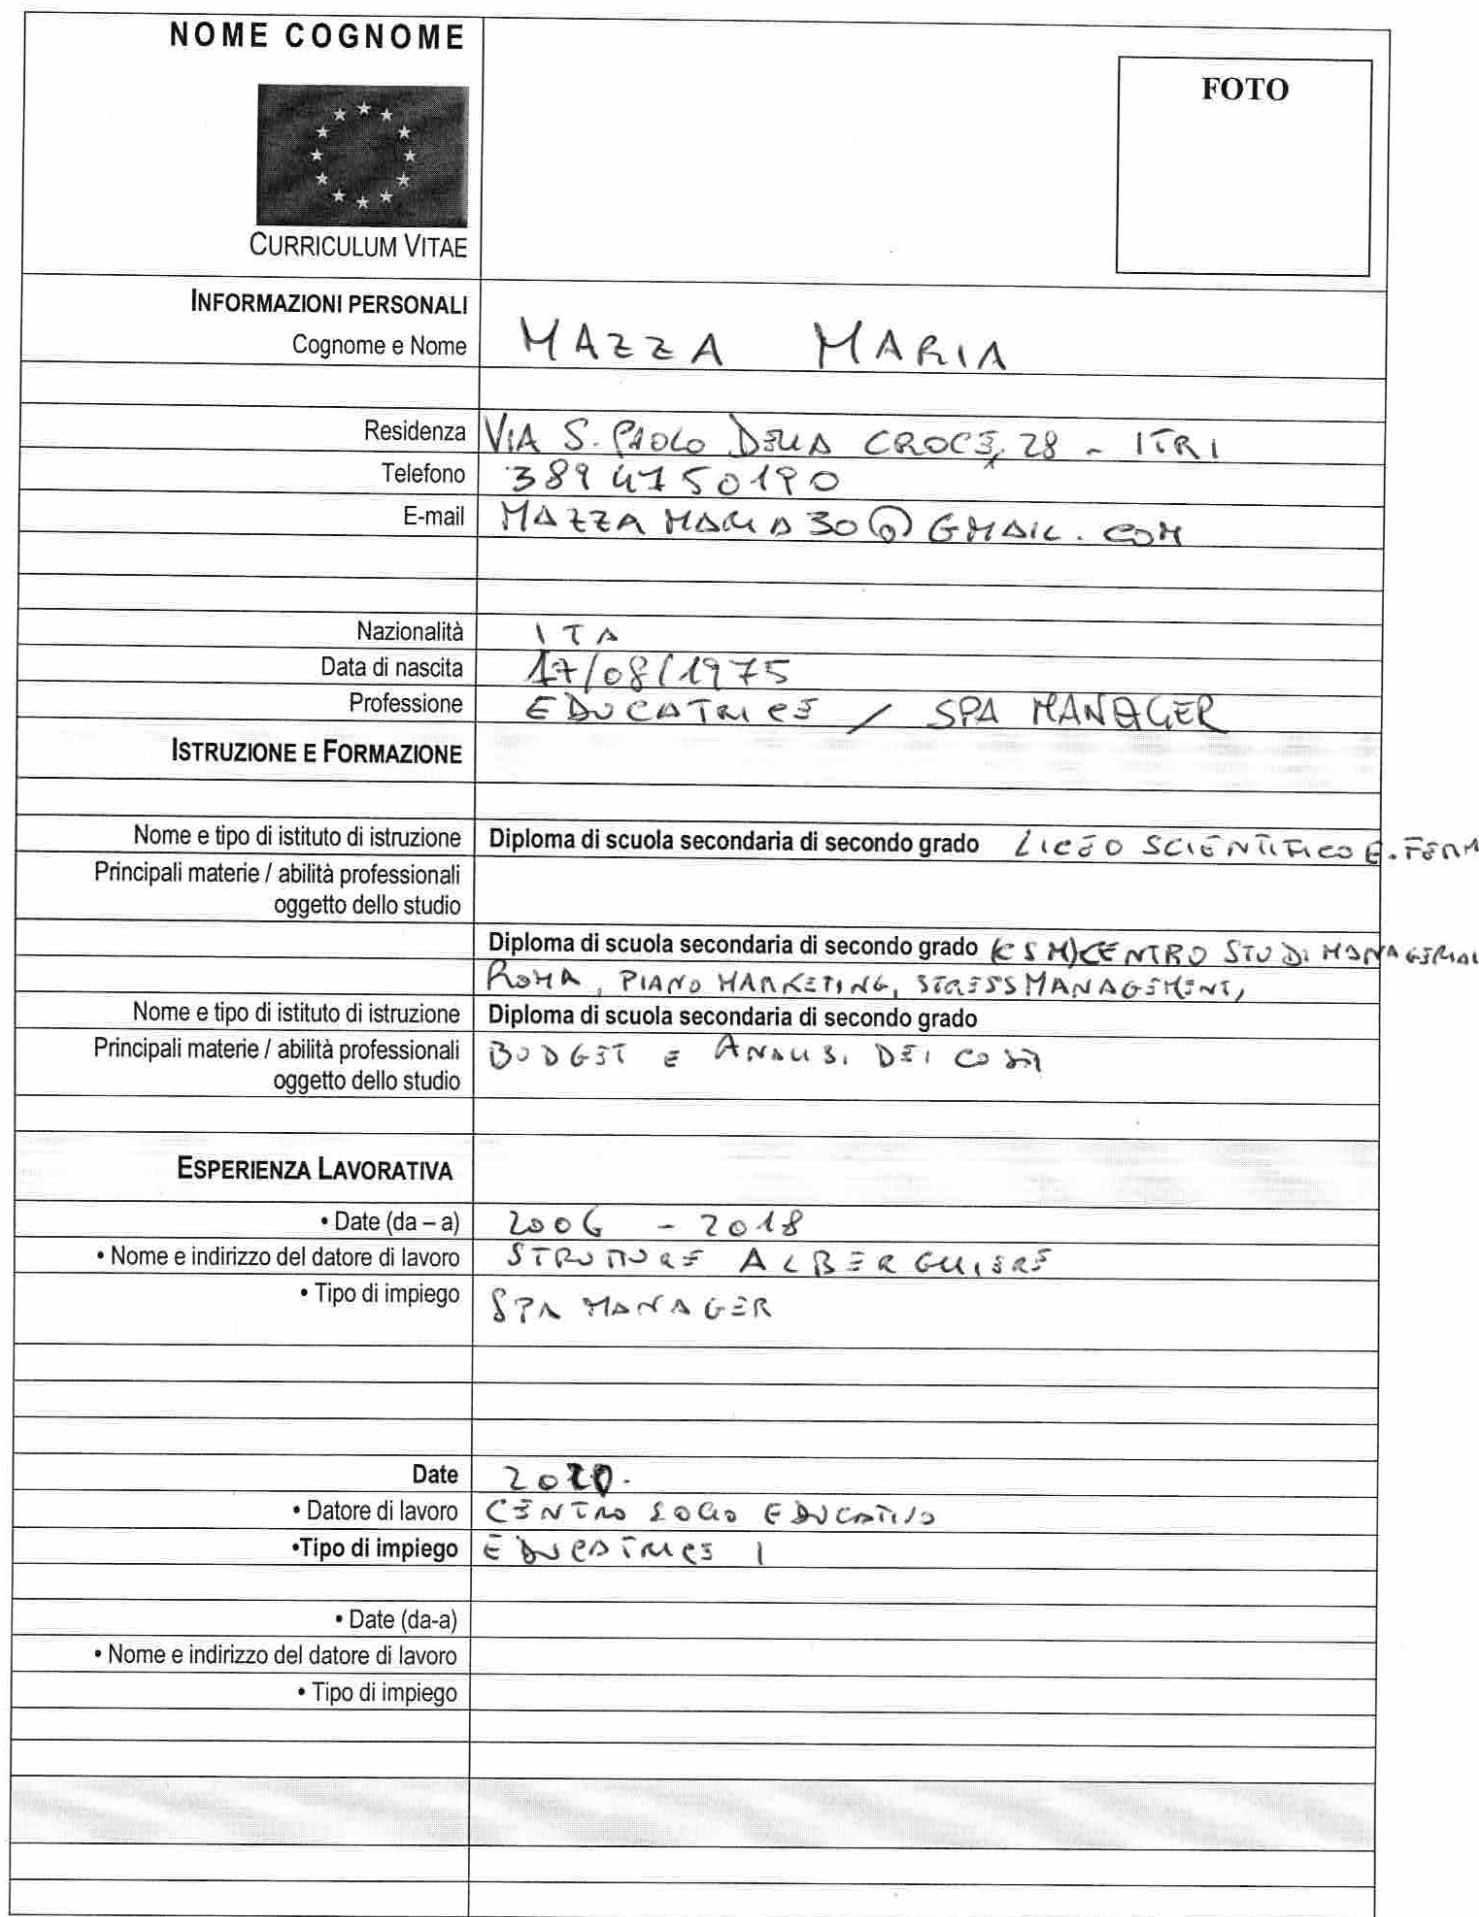 NOME COGNOME
FOTO
CURRICULUM VITAE
INFORMAZIONI PERSONALI
Cognome e Nome MAZZA MARIA
Residenza VIA S. PAOLO DELLA CROCE, 28 - ITRI
Telefono 3894750190
E-mail MAZZAMARIA30@GMAIL.COM
Nazionalità ITA
Data di nascita 17/08/1975
Professione EDUCATRICE / SPA MANAGER
ISTRUZIONE E FORMAZIONE
Nome e tipo di istituto di istruzione Diploma di scuola secondaria di secondo grado LICEO SCIENTIFICO E. FERM
Principali materie / abilità professionali
oggetto dello studio
Diploma di scuola secondaria di secondo grado (CSM) CENTRO STUDI MANAGERIAL
ROMA, PIANO MARKETING, STRESS MANAGEMENT,
Nome e tipo di istituto di istruzione Diploma di scuola secondaria di secondo grado
Principali materie / abilità professionali BUDGET E ANALISI DEI COSTI
oggetto dello studio
ESPERIENZA LAVORATIVA
• Date (da – a) 2006 - 2018
• Nome e indirizzo del datore di lavoro STRUTTURE ALBERGHIERE
• Tipo di impiego SPA MANAGER
Date 2020.
• Datore di lavoro CENTRO SOCIO EDUCATIVO
•Tipo di impiego EDUCATRICE
• Date (da-a)
• Nome e indirizzo del datore di lavoro
• Tipo di impiego